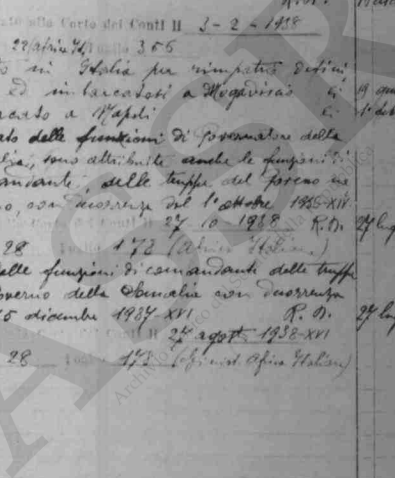 ato alla Corte dei Conti il 3-2-1938
22/Africa It/ Foglio 356
to in Italia per rimpatrio defini
ed imbarcatosi a Mogadiscio li 19 gen
rcato a Napoli li 1° feb
ato delle funzioni di governatore della
lia, sono attribuite anche le funzioni di
andante, delle truppe del governo me
o, con decorrenza dal 1° ottobre 1936-XIV
dei Conti il 27-10-1938 R.D. 27 lug
28 Foglio 172 (Africa Italiana)
alle funzioni di comandante delle truppe
overno della Somalia con decorrenza
15 dicembre 1937-XVI R.D. 27 lug
27 agost 1938-XVI
28 Foglio 173 (Minist. Africa Italian)